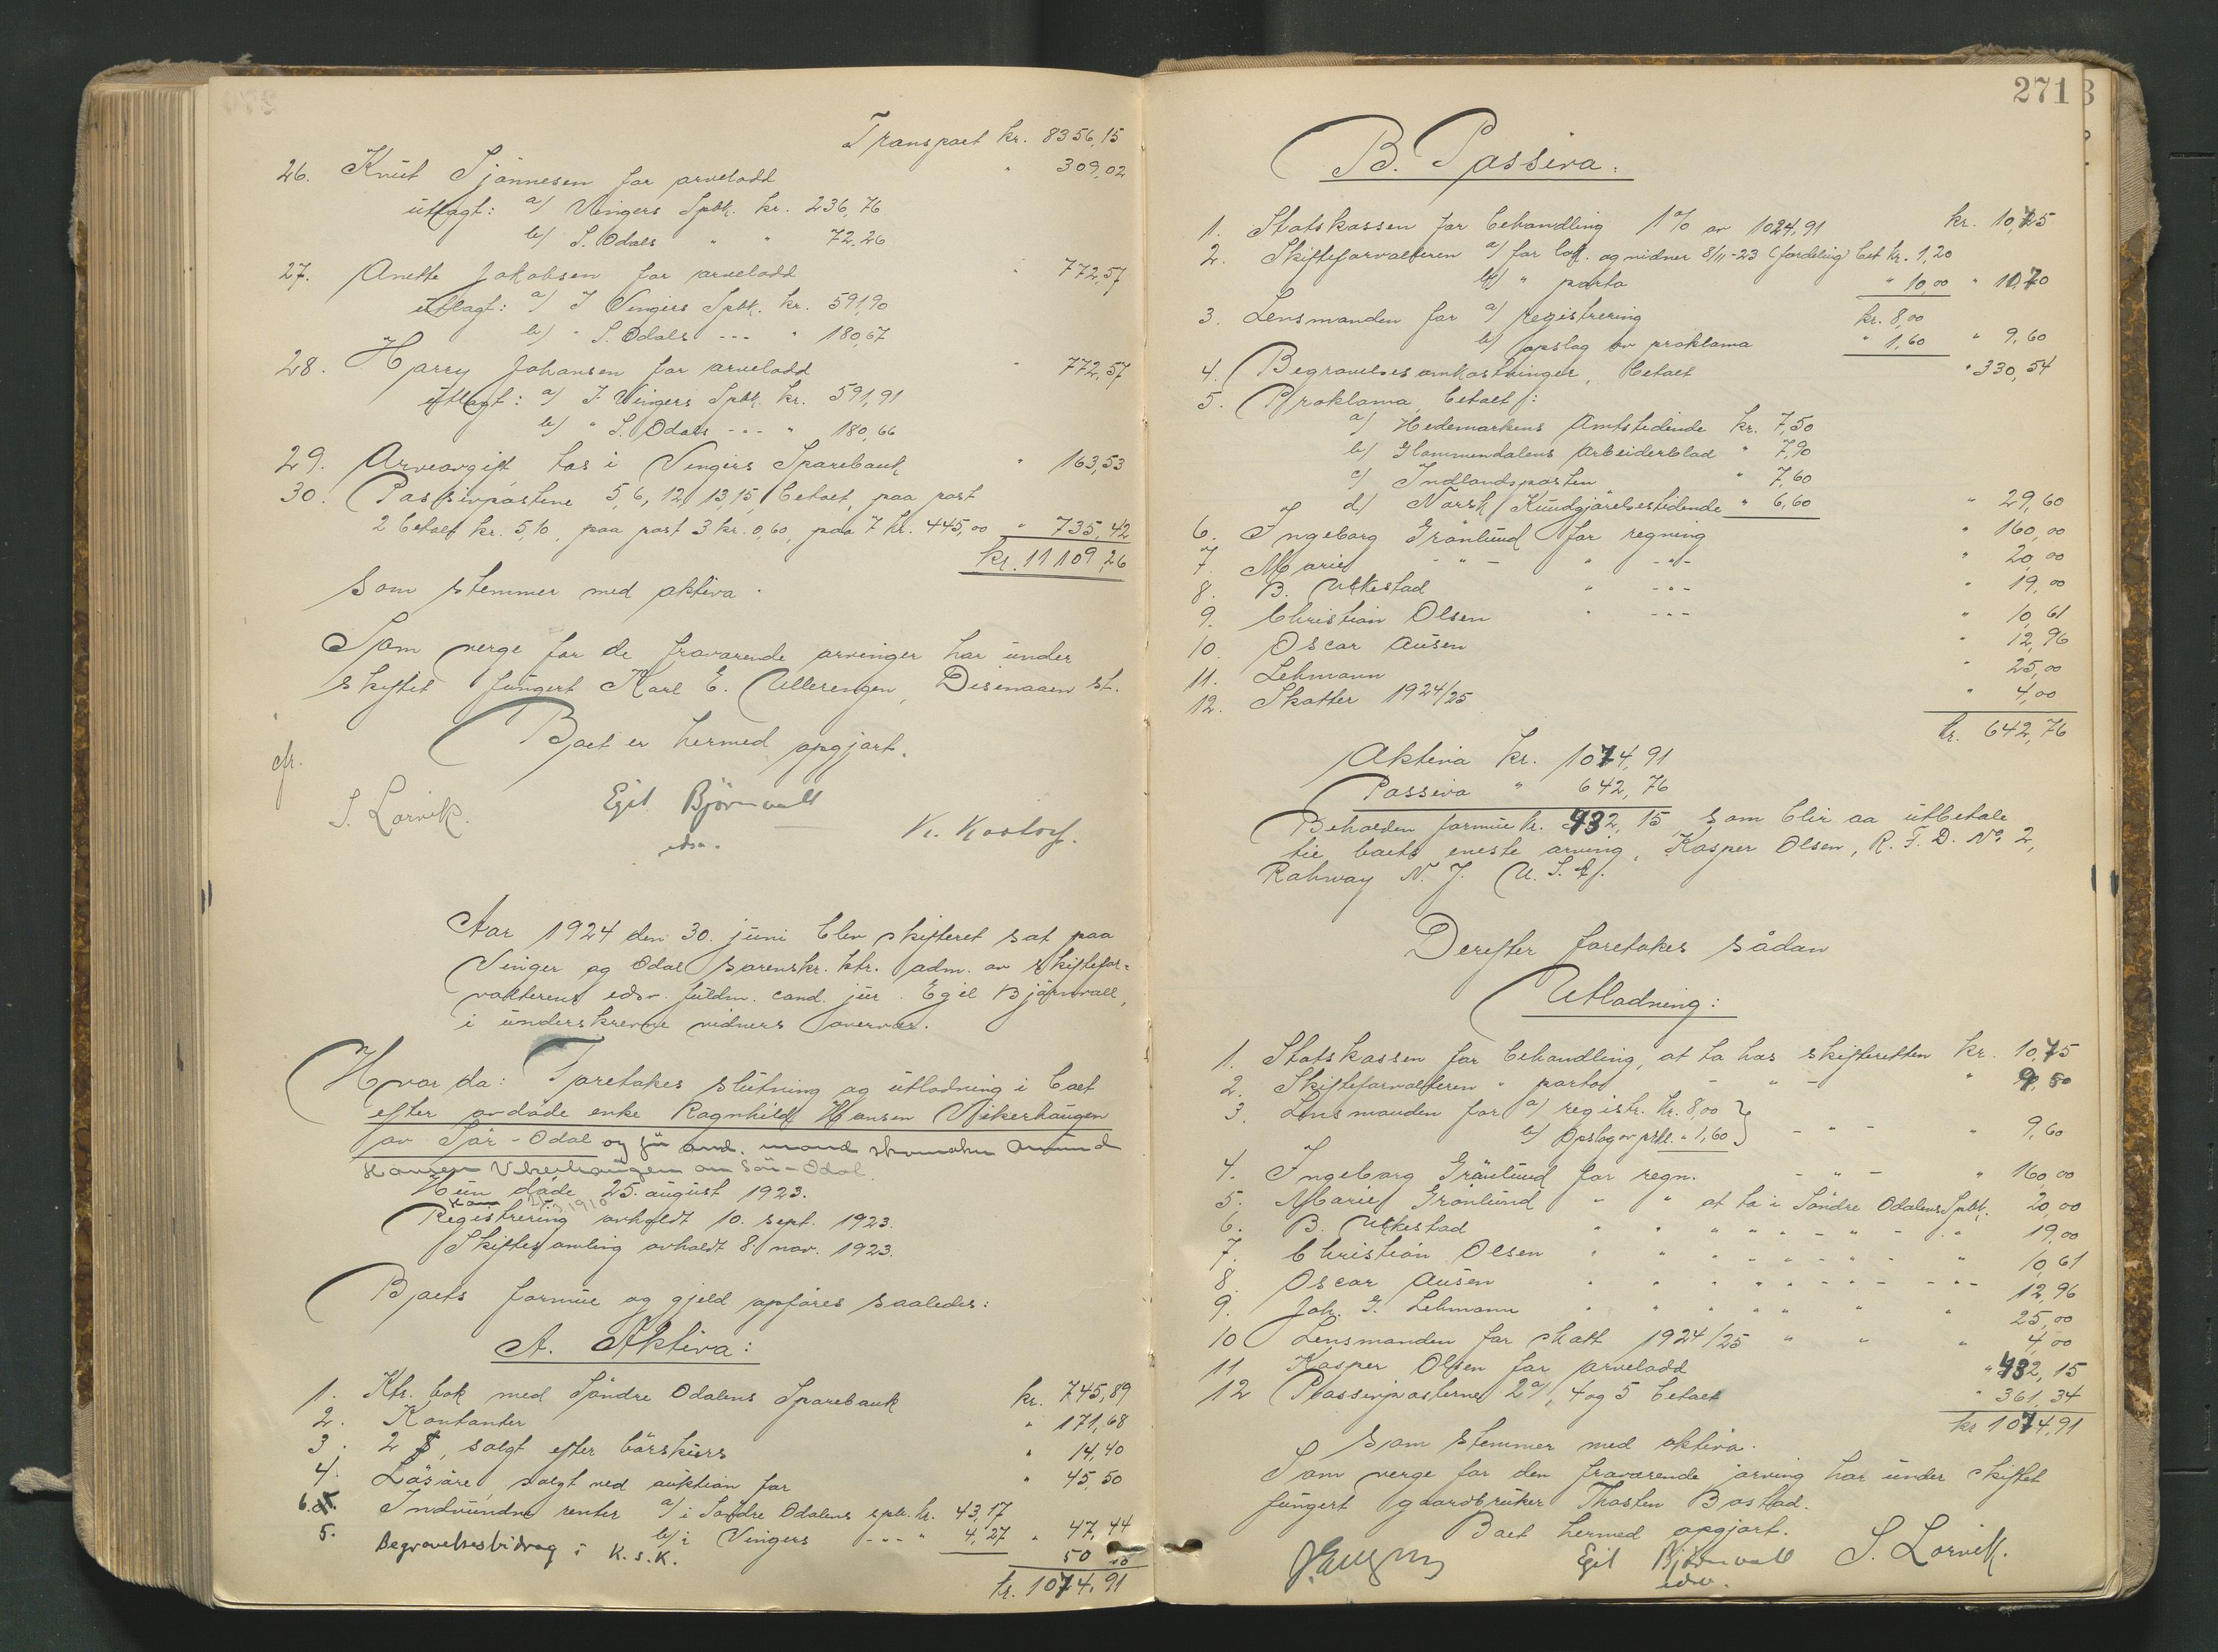 Transport kr. 8356,15
26. Knut Sjønnesen for arvelodd " 309,02
utlagt: a/ Vingers Spbk. kr. 236,76
b/ S. Odals " " 72.26
27. Anette Jakobsen for arvelodd " 772,57
utlagt: a/ I Vingers Spbk. kr. 591,90
b/ " S. Odals - - - " 180,67
28. Harry Johansen for arvelodd " 772,57
utlagt: a/ I Vingers Spbk. kr. 591,91
b/ " S. Odals - - - " 180,66
29. Arveavgift tas i Vingers Sparebank " 163,53
30. Passivpostene 5,6, 12, 13, 15, betalt, paa post
2 betalt kr. 5,10, paa post 3 kr. 0,60, paa 7 kr. 445,00 " 735,42
kr. 11109,26
som stemmer med aktiva.
Som verge for de fraværende arvinger har under
skiftet fungert Karl E. Ullerengen, Disenaaen st.
Boet er hermed opgjort.
cfr.
S. Lorvik. Egil Bjørnvall
edsv.
Aar 1924 den 30. juni blev skifteret sat paa
Vinger og Odal sorenskr. ktr. adm. av skiftefor-
valterens edsv. fuldm. cand. jur. Egil Bjørnvall,
i underskrevne vidners overvær.
Hvor da: Foretokes slutning og utlodning i boet
efter avdøde enke Ragnhild Hansen Vikerhaugen
av Sør-Odal og før avd. mand skomaker Amund
Hansen Vikerhaugen av Sør-Odal
Hun døde 25. august 1923.
Han 1910
Registrering avholdt 10. sept. 1923.
Skiftesamling avholdt 8. nov. 1923.
Boets formue og gjeld opføres saaledes:
A. Aktiva:
1. Ktr. bok med Søndre Odalens Sparebank kr. 745,89
2. Kontanter " 171,68
3. 2 $, solgt efter børskurs " 14,40
4. Løsøre, solgt ved auktion for " 45,50
6. Indvundne renter a/ i Søndre Odalens spb. kr. 43,17
b/ i Vingers - - - " 4,27 " 47,44
5. Begravelsesbidrag i K.S.K. 50
kr. 1074,91
271
B. Passiva:
1. Statskassen for behandling 1% av 1024,91 kr. 10,75
2. Skifteforvalteren a/ for lok. og vidner 8/11-23 (fordeling) bet kr. 1,20
b/ " porto " 10,00 " 10,70
3. Lensmanden for a/ registrering kr. 8,00
b/ opslag av proklama " 1,60 " 9,60
4. Begravelsesomkostninger, betalt " 330,54
5. Proklama, betalt:
a/ Hedemarkens Amtstidende kr. 7,50
b/ Glommendalens Arbeiderblad " 7,90
c/ Indlandsposten " 7,60
d/ Norsk Kundgjørelsestidende " 6,60 " 29,60
6. Ingeborg Grønlund for regning " 160,00
7. Marie - " - " - " - " 20,00
8. B. Ulkestad " - " - " 19,00
9. Christian Olsen " - " - " 10,61
10. Oscar Ausen " 12,96
11. Lehmann " 25,00
12. Skatter 1924/25 " 4,00
kr. 642,76
Aktiva kr. 1074,91
Passiva " 642,76
Beholden formue kr. 432,15 som blir aa utbetale
til boets eneste arving, Kasper Olsen, R. F. D. No. 2,
Rahway N. J. U. S. A.
Derefter foretokes sådan
Utlodning:
1. Statskassen for behandling, at ta hos skifteretten kr. 10,75
2. Skifteforvalteren " porto - " - " 9,50
3. Lensmanden for a/ registr. kr. 8,00
b/ Opslag av prkl. " 1,60 - " - " 9,60
4. Ingeborg Grønlund for regn. - " - " 160,00
5. Marie Grønlund " " at ta i Søndre Odalens Spbk. 20,00
6. B. Ulkestad " " " " - " - " 19,00
7. Christian Olsen " " " " - " - " 10,61
8. Oscar Ausen " " " " - " - " 12,96
9. Joh. G. Lehmann " " " " " " 25,00
10 Lensmanden for skatt 1924/25 " " " 4,00
11 Kasper Olsen for arvelodd " 432,15
12 Passivposterne 2a/, 4 og 5 betalt " 361,34
kr 1074,91
som stemmer med aktiva.
Som verge for den fraværende arving har under skiftet
fungert gaardbruker Thosten Bostad.
Boet hermed opgjort.
Egil Bjørnvall S. Lorvik.
edsv.